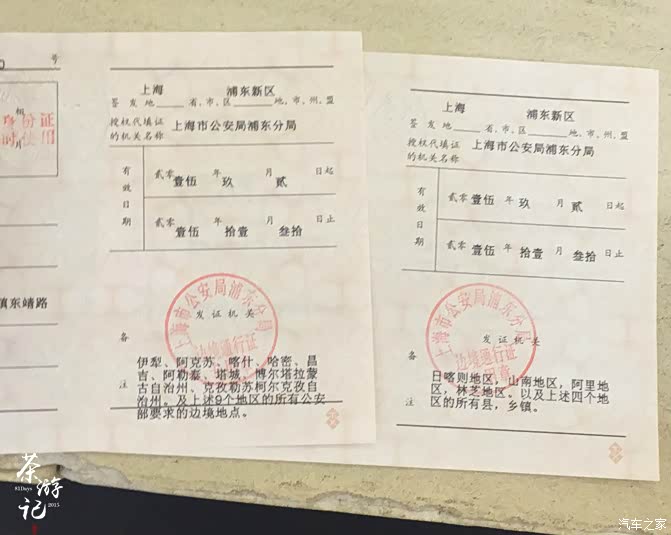 号
上海 浦东新区
签发地 省、市、区 地、市、州、盟
授权代填证
的机关名称 上海市公安局浦东分局
有效日期
贰零壹伍 年 玖 月 贰 日起
贰零壹伍 年 拾壹 月 叁拾 日止
上海市公安局浦东分局
发证机关
边境通行证
备注
伊犁、阿克苏、喀什、哈密、昌
吉、阿勒泰、塔城、博尔塔拉蒙
古自治州、克孜勒苏柯尔克孜自
治州。及上述9个地区的所有公安
部要求的边境地点。
份证
使用
镇东靖路
上海 浦东新区
签发地 省、市、区 地、市、州、盟
授权代填证
的机关名称 上海市公安局浦东分局
有效日期
贰零壹伍 年 玖 月 贰 日起
贰零壹伍 年 拾壹 月 叁拾 日止
上海市公安局浦东分局
发证机关
边境通行证
备注
日喀则地区，山南地区，阿里地
区，林芝地区。以及上述四个地
区的所有县，乡镇。
茶游记
81Days
2015
汽车之家